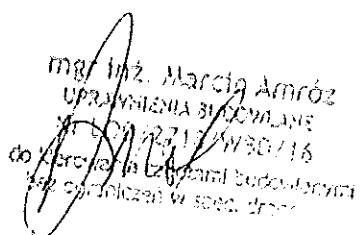 mgr inż. Marcin Amróz
UPRAWNIENIA BUDOWLANE
do kierowania robotami budowlanymi
bez ograniczeń w spec. drog